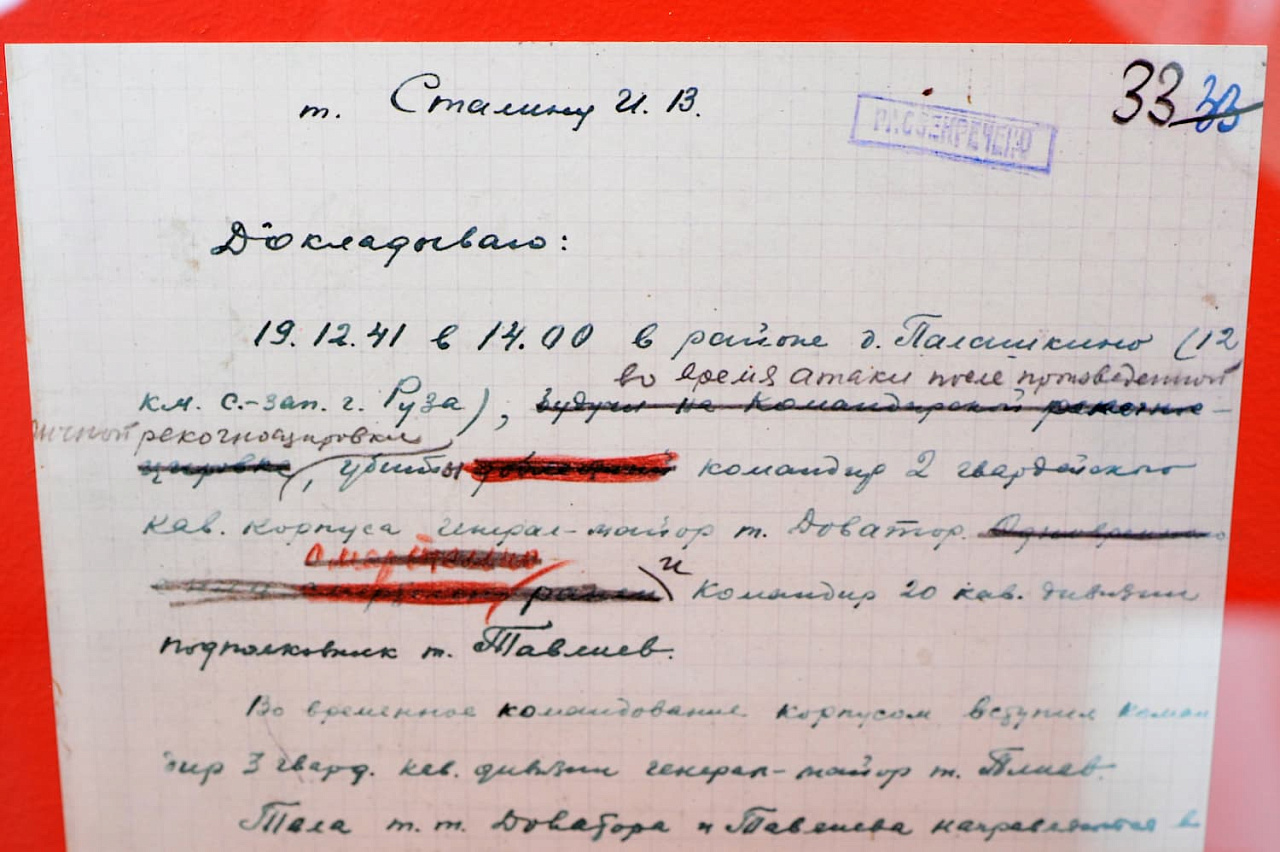 33 33
т. Сталину И. В.
РАССЕКРЕЧЕНО
Докладываю:
19.12.41 в 14.00 в районе д. Палашкино (12
во время атаки после произведенной
км. с.-зап. г. Руза), будучи на командирской рекогно-
личной рекогносцировки
сцировке, убиты командир 2 гвардейского
кав. корпуса генерал-майор т. Доватор. Одновременно
смертельно
ранен и командир 20 кав. дивизии
подполковник т. Тавлиев.
Во временное командование корпусом вступил коман
дир 3 гвард. кав. дивизии генерал-майор т. Плиев.
Тела т.т. Доватора и Тавлиева направляются в